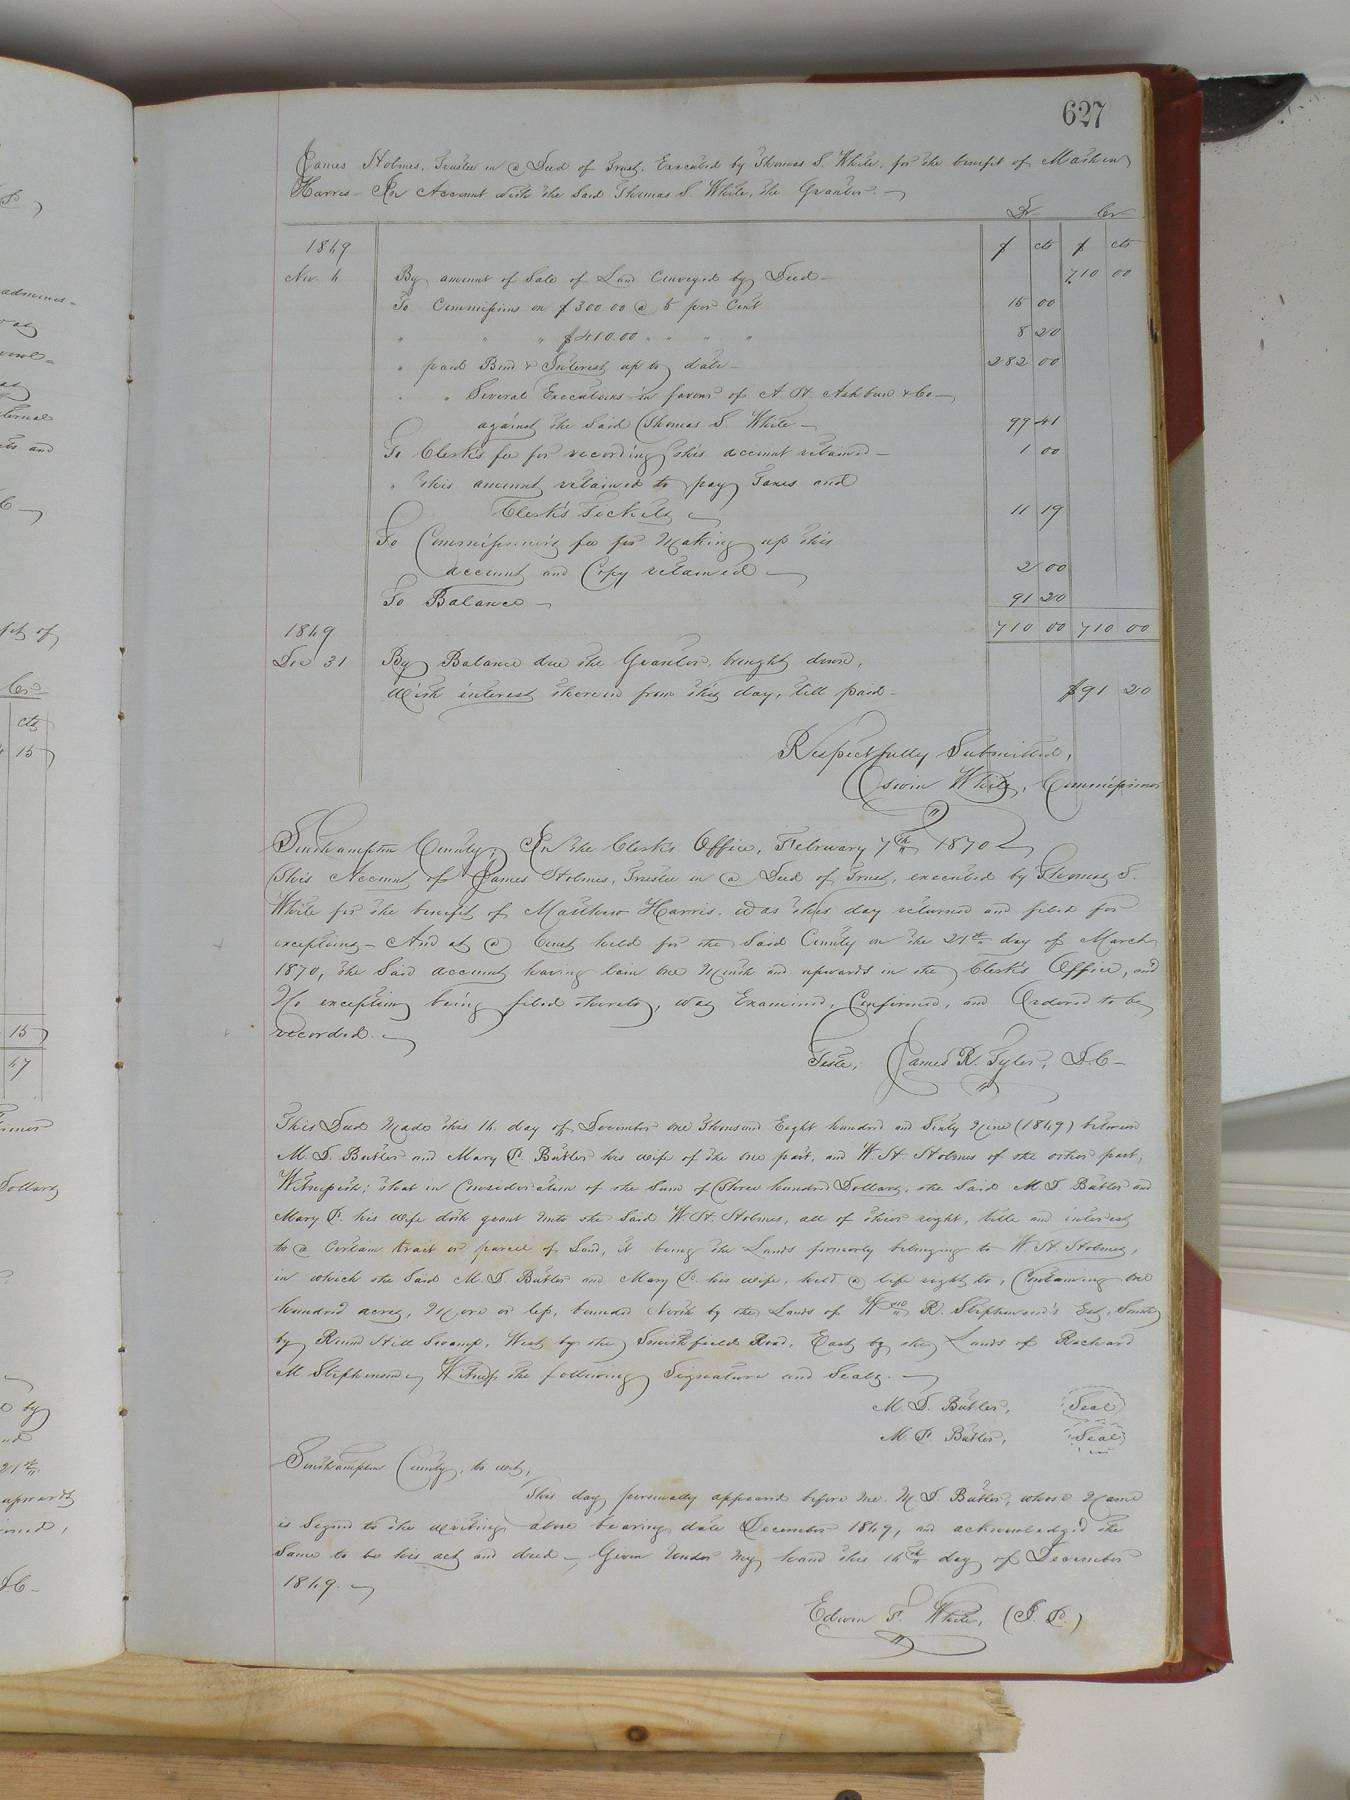 627
James Holmes, Trustee in a Deed of Trust, Executed by Thomas S. White, for the benefit of Mathew
Harris - In Account with the Said Thomas S. White, the Grantor.
Dr Cr
1869 $ cts $ cts
Nov. 6 By amount of Sale of Land Conveyed by Deed 710 00
To Commissions on $300.00 @ 5 per Cent 15 00
" " " $410.00 " " " " 8 20
" paid Bond & Interest up to date 282 00
" " Several Executions in favour of A. H. Ashburn & Co
against the Said Thomas S. White 99 41
To Clerk's fee for recording this account retained 1 00
" this amount retained to pay Taxes and
Clerk's Tickets 11 19
To Commissioner's fee for Making up this
account and Copy retained 2 00
To Balance 91 20
1869 710 00 710 00
Dec 31 By Balance due the Grantor, brought down,
With interest thereon from this day, till paid $91 20
Respectfully Submitted,
White, Commissioner
Southampton County, In the Clerk's Office, February 7th 1870
This Account of James Holmes, Trustee in a Deed of Trust, executed by Thomas S.
White for the benefit of Matthew Harris, was this day returned and filed for
exceptions - And at a Court held for the Said County on the 21st day of March
1870, the Said account having lain one Month and upwards in the Clerk's Office, and
No exceptions being filed thereto, was Examined, Confirmed, and Ordered to be
recorded.
Teste, James R. Tyler, D.C
This Deed Made this 16 day of December one Thousand Eight hundred and Sixty Nine (1869) between
M. D. Butler and Mary P. Butler his wife of the one part, and W. H. Holmes of the other part,
Witnesseth; that in Consideration of the Sum of Three hundred Dollars, the Said M. D. Butler and
Mary P. his wife doth grant unto the Said W. H. Holmes, all of their right, title and interest
to a Certain tract or parcel of Land, it being the Lands formerly belonging to W H Holmes,
in which the Said M. D. Butler and Mary P. his wife, held a life right to, Containing one
hundred acres, More or less, bounded North by the Lands of Wm R. Stephenson's Est, South
by Round Hill Swamp, West by the Smithfield Road, East by the Lands of Richard
M Stephenson, Witness the following Signature and Seals.
M. D. Butler, Seal
M. P. Butler, Seal
Southampton County, to wit,
This day personally appeared before me M. D. Butler, whose Name
is Signed to the writing above bearing date December 1869, and acknowledg'd the
Same to be his act and deed - Given Under My hand this 16th day of December
1869.
Edwin F. White, (J. P.)